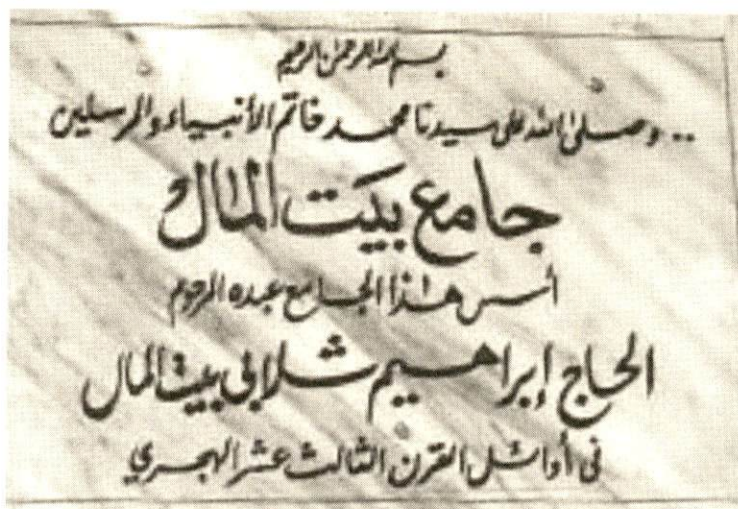 بسم الله الرحمن الرحيم
.. وصلى الله على سيدنا محمد خاتم الأنبياء والمرسلين
جامع بيت المال
أسس هذا الجامع عبده المرحوم
الحاج إبراهيم شلابي بيت المال
في أوائل القرن الثالث عشر الهجري